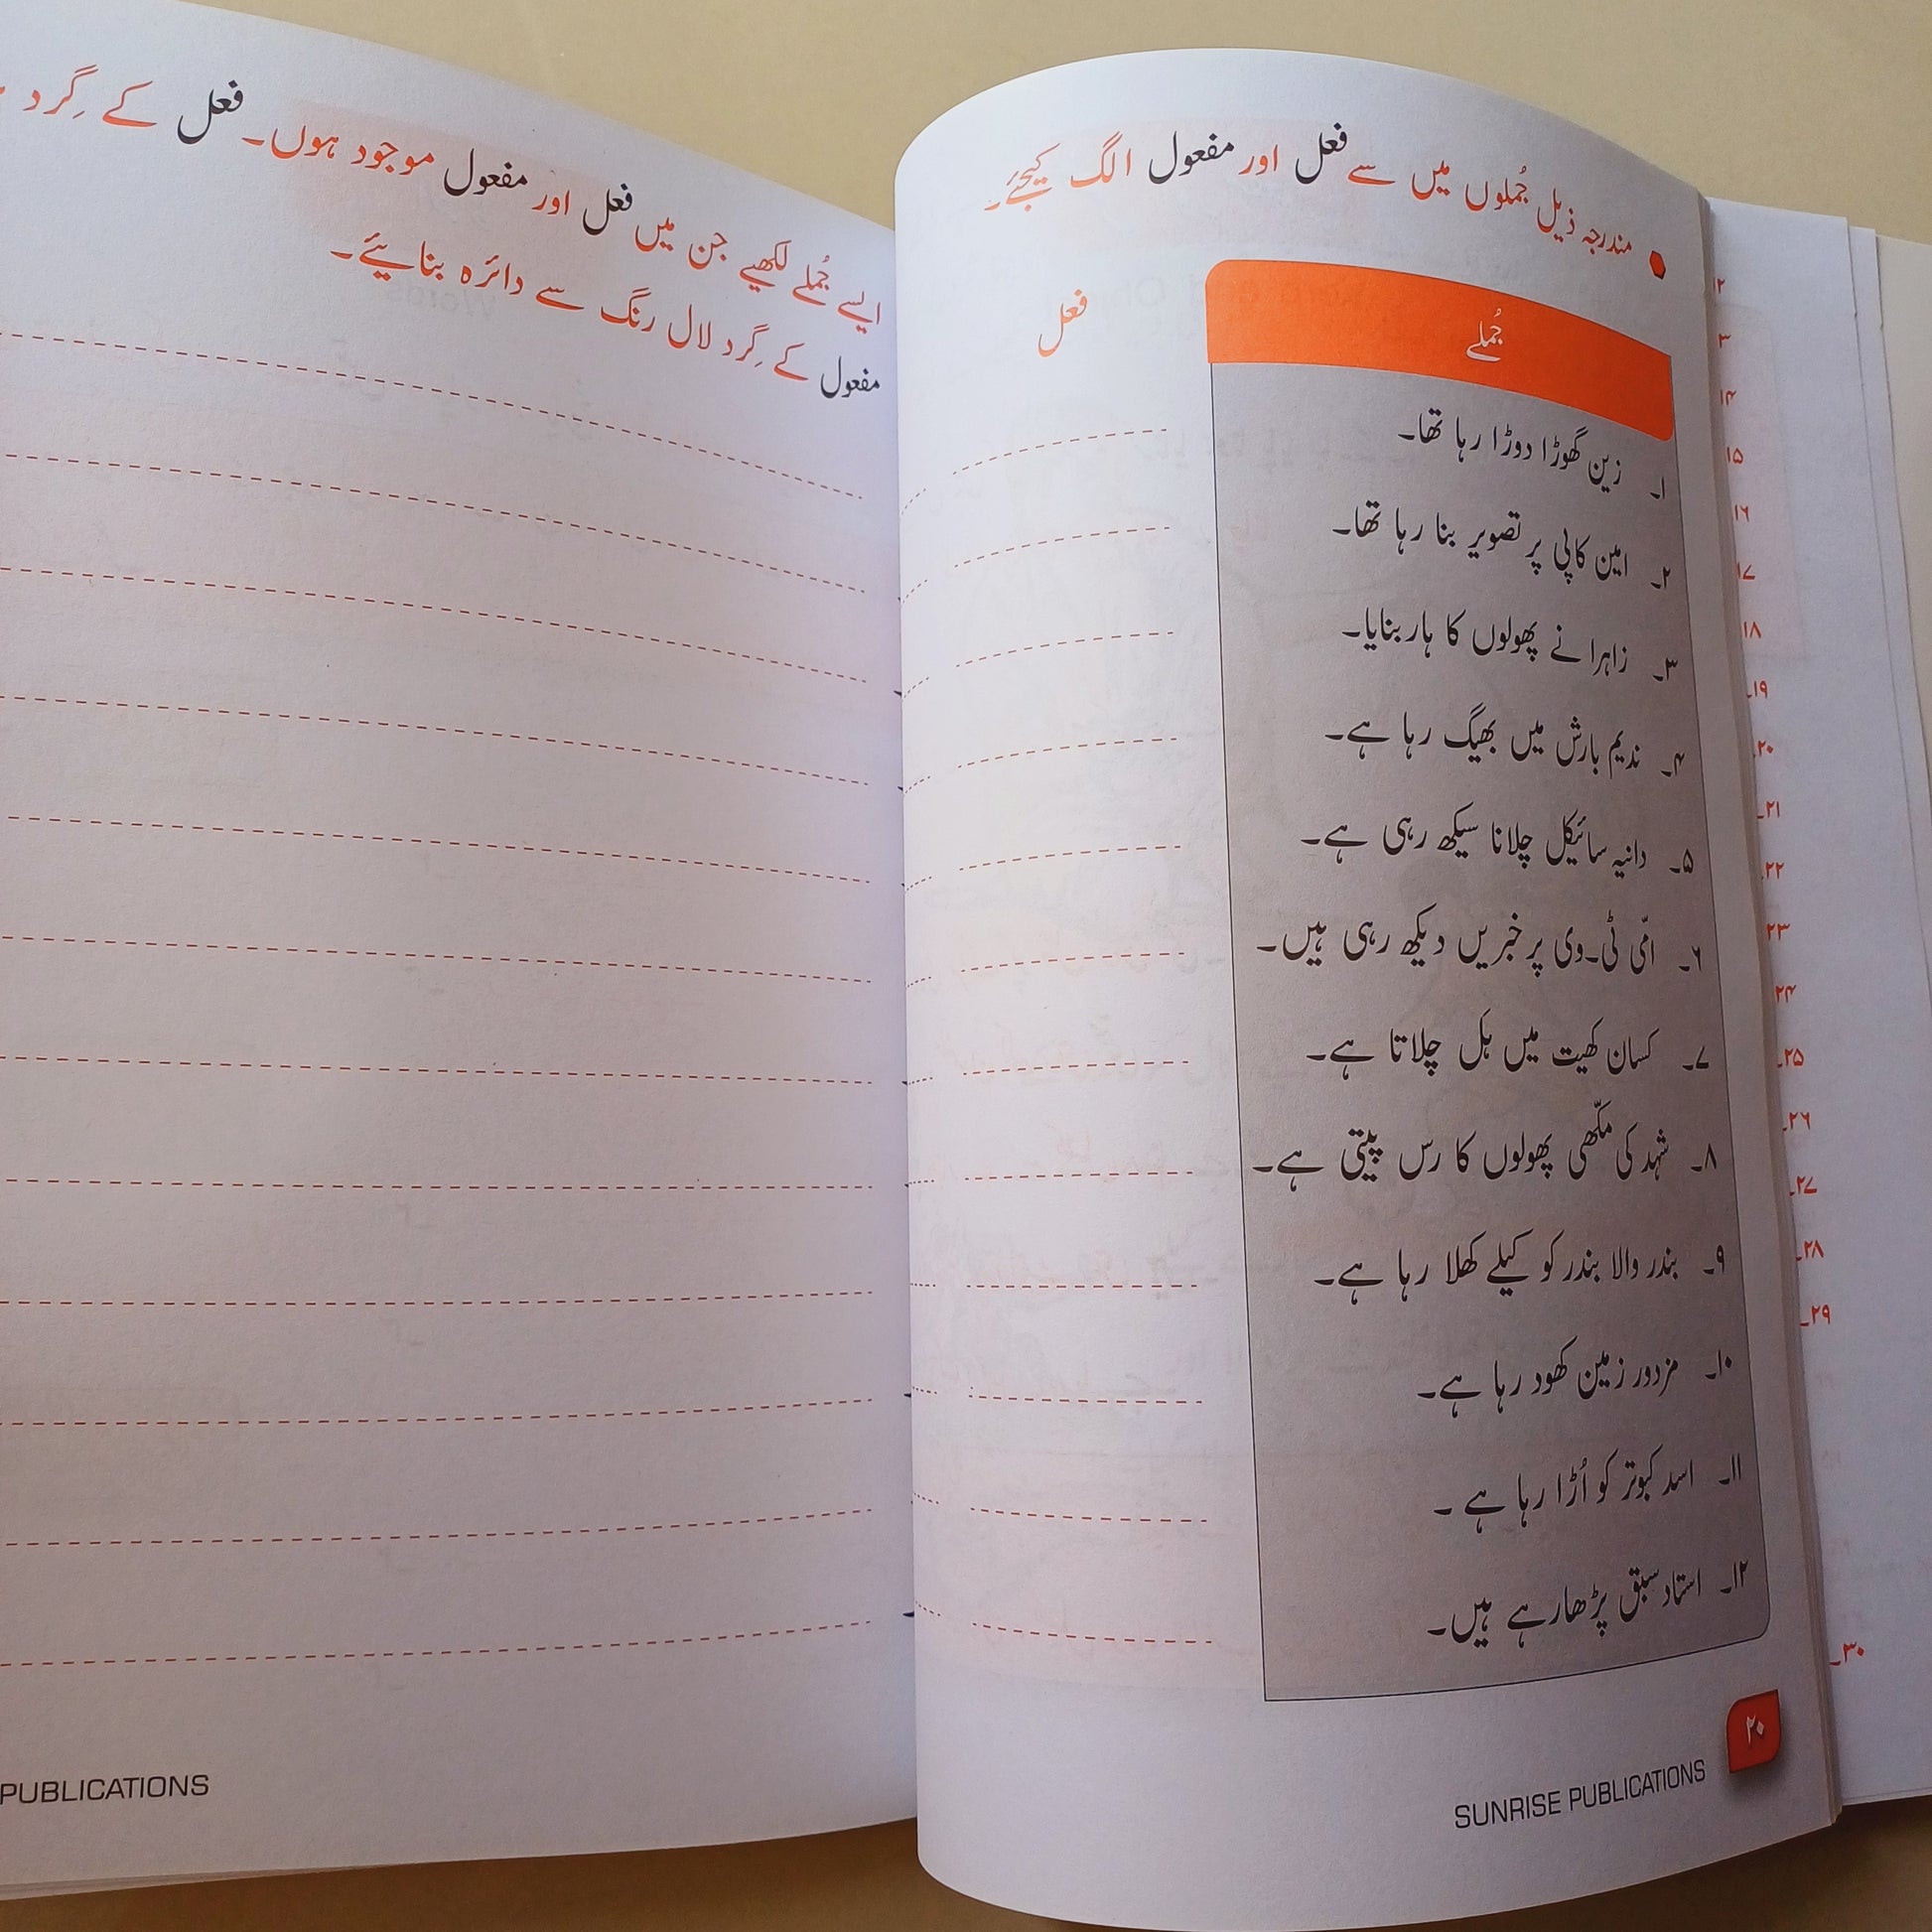 مندرجہ ذیل جُملوں میں سے فعل اور مفعول الگ کیجئے۔
جُملے
فعل
۱۔ زین گھوڑا دوڑا رہا تھا۔
۲۔ امین کاپی پر تصویر بنا رہا تھا۔
۳۔ زاہرا نے پھولوں کا ہار بنایا۔
۴۔ ندیم بارش میں بھیگ رہا ہے۔
۵۔ دانیہ سائیکل چلانا سیکھ رہی ہے۔
۶۔ امّی ٹی۔وی پر خبریں دیکھ رہی ہیں۔
۷۔ کسان کھیت میں ہل چلاتا ہے۔
۸۔ شہد کی مکّھی پھولوں کا رس پیتی ہے۔
۹۔ بندر والا بندر کو کیلے کھلا رہا ہے۔
۱۰۔ مزدور زمین کھود رہا ہے۔
۱۱۔ اسد کبوتر کو اُڑا رہا ہے ۔
۱۲۔ استاد سبق پڑھا رہے ہیں۔
۲۰
SUNRISE PUBLICATIONS
ایسے جُملے لکھیے جن میں فعل اور مفعول موجود ہوں۔ فعل کے گِرد
مفعول کے گِرد لال رنگ سے دائرہ بنائیے۔
PUBLICATIONS
۱۴
۱۵
۱۶
۱۷
۱۸
۱۹۔
۲۰
۲۱۔
۲۲
۲۳
۲۴
۲۵۔
۲۶۔
۲۷۔
۲۸۔
۲۹۔
۳۰۔